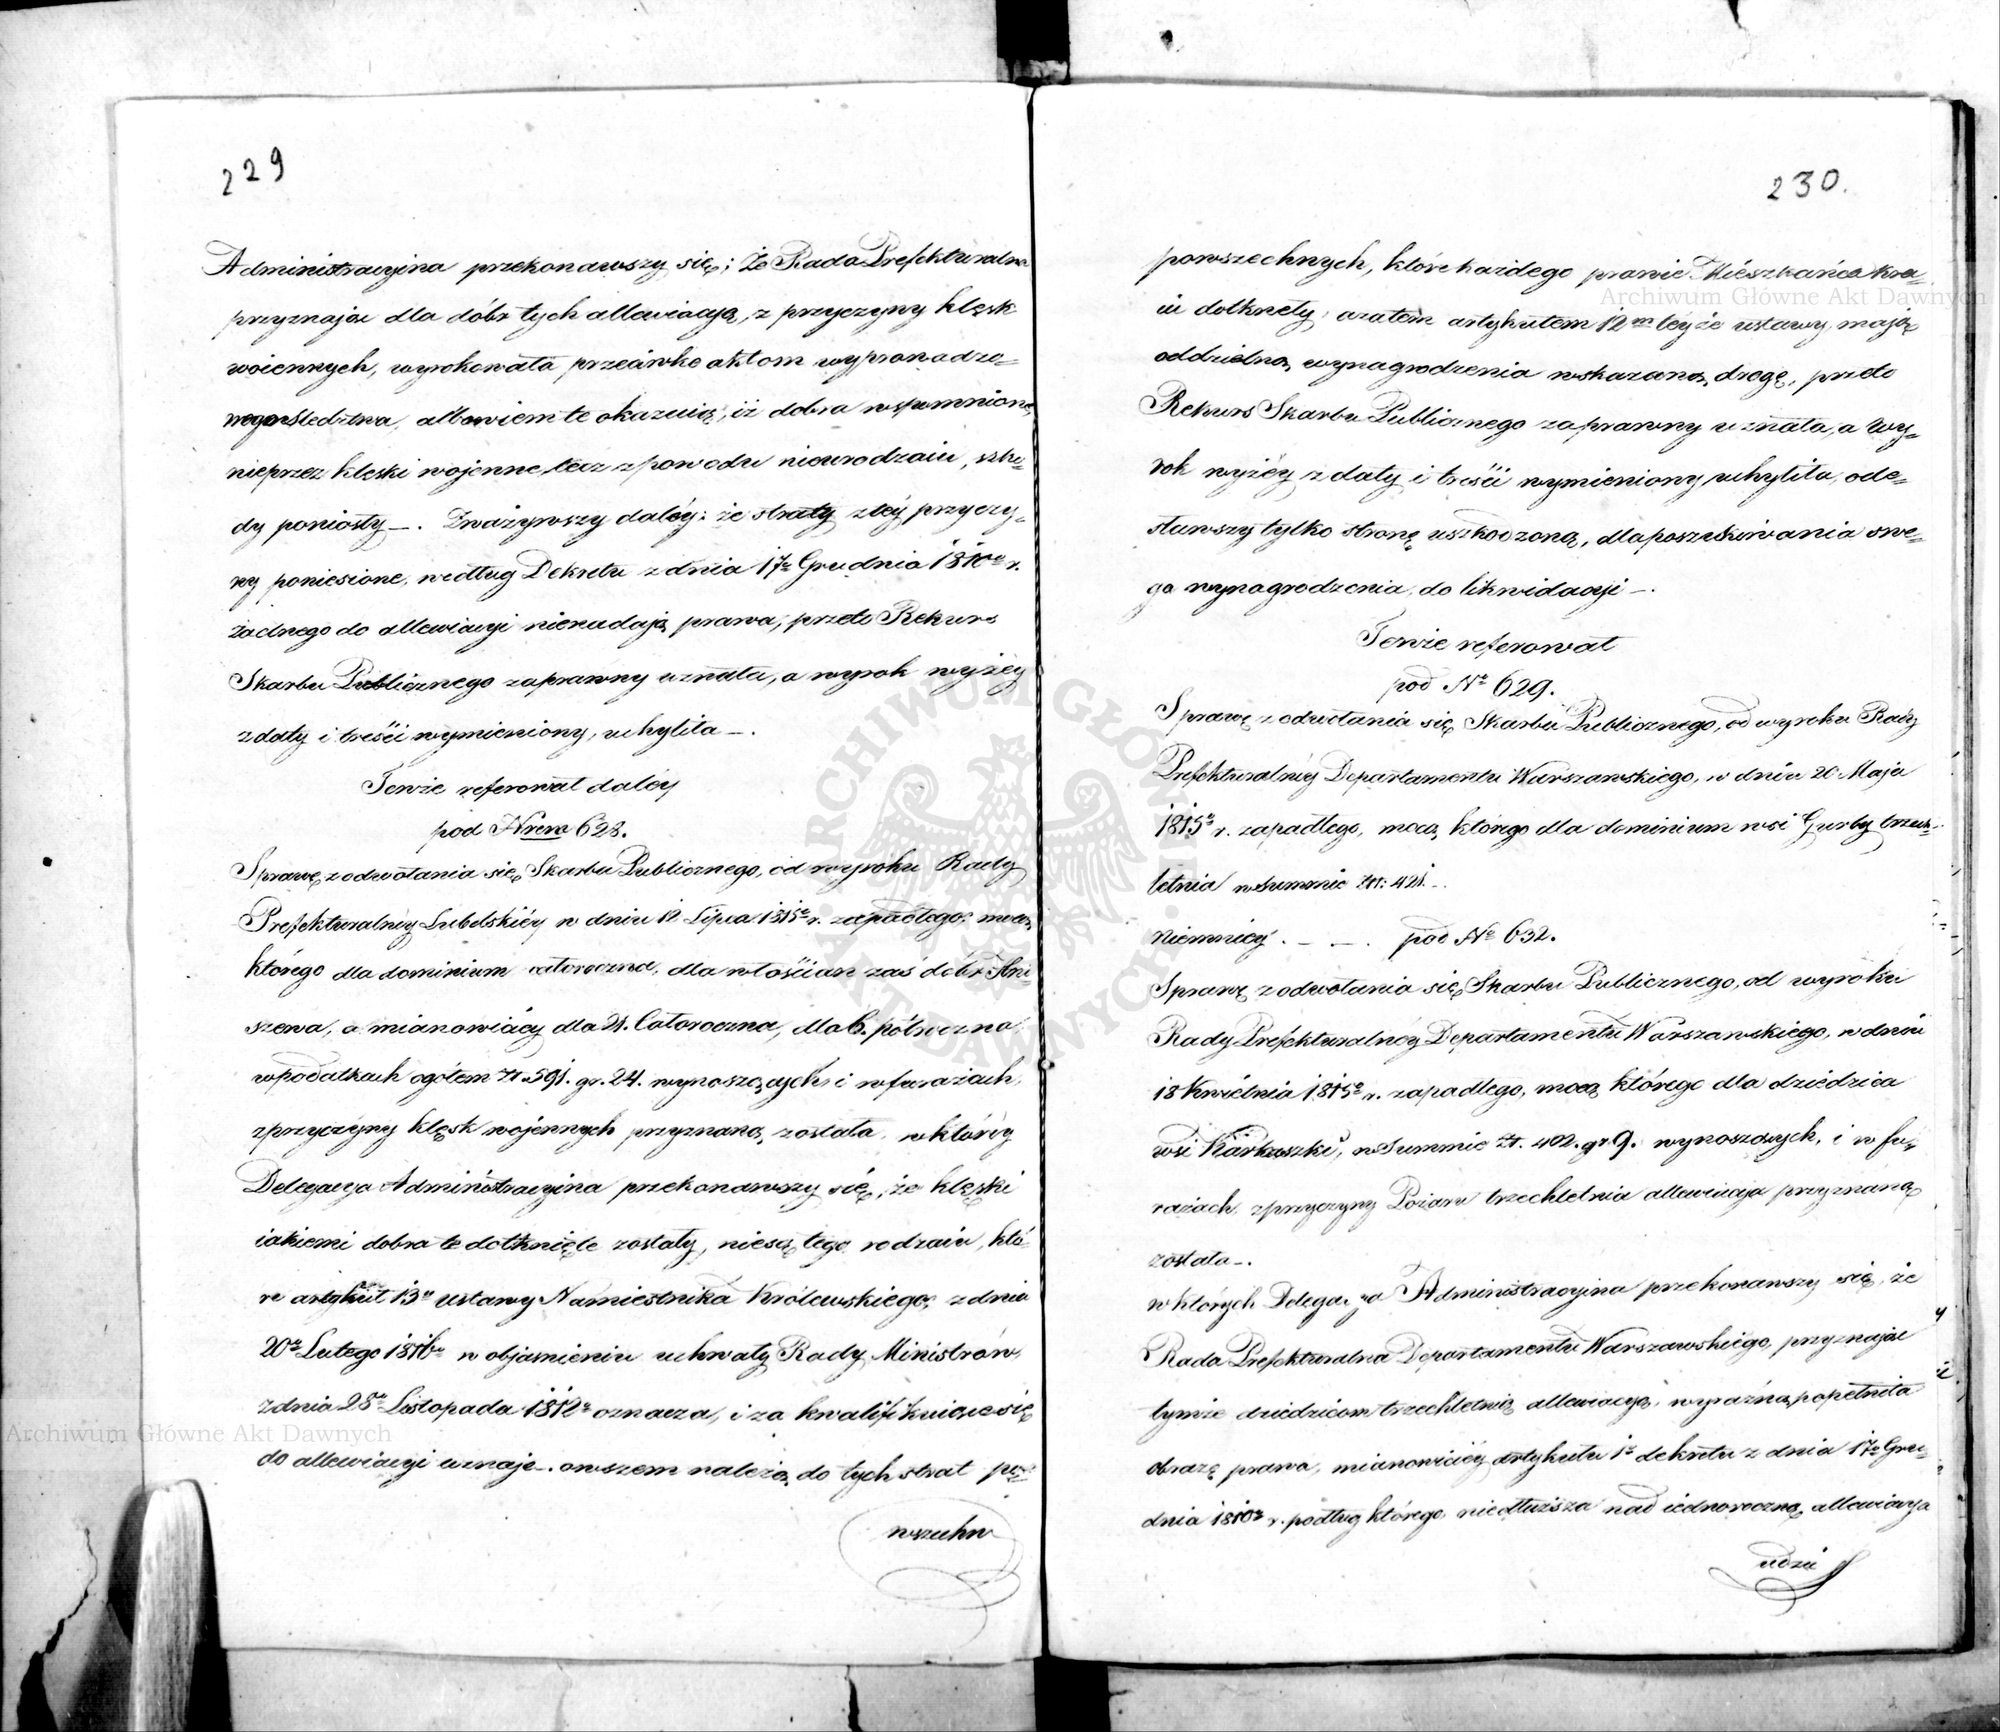 229
Administracyina przekonawszy się; że Rada Prefekturalna
przyznając dla dóbr tych allewiacyą, z przyczyny klęsk
woiennych, wyrokowała przeciwko aktom wyprowadzo=
nego śledztwa, albowiem te okazuią, iż dobra wspomnione,
nieprzez klęski wojenne lecz z powodu nieurodzaiu, szko=
dy poniosły —. Zważywszy daléy: że straty z téy przyczy=
ny poniesione, według Dekretu z dnia 17o Grudnia 1810o r.
żadnego do allewiacyi nienadają prawa, przeto Rekurs
Skarbu Publicznego zaprawny uznała, a wyrok wyżéy
z daty i treści wymieniony, uchyliła —.
Tenże referował daléy
pod Nrem 628.
Sprawę z odwołania się Skarbu Publicznego, od wyroku Rady
Prefekturalnéy Lubelskiéy w dniu 12 Lipca 1815o r. zapadłego, mocą
którego dla dominium całoroczna, dla włościan zaś dóbr
szewa, a mianowicéy dla 21. Całoroczna, dla 6. półroczna
w podatkach ogółem Zł. 591. gr. 24. wynoszących i w furażach,
z przyczyny klęsk wojennych przyznaną została, w któréy
Delegacya Administracyina przekonawszy się, że klęski
iakiemi dobra te dotknięte zostały, niesą tego rodzaiu, któ=
re artykuł 13o ustawy Namiestnika Królewskiego, z dnia
20o Lutego 1816o w objasnieniu uchwały Rady Ministrów,
z dnia 28o Listopada 1812o oznacza, i za kwalifikuiące się
do allewiacyi uznaje —. owszem należą do tych strat po=
wszechn
230.
powszechnych, które każdego prawie Mieszkańca kra=
iu dotknęły, a zatém artykułem 12m téyże ustawy, mają
oddzielną wynagrodzenia wskazaną drogę, przeto
Rekurs Skarbu Publicznego zaprawny uznała, a wy=
rok wyżéy z daty i treści wymieniony uchyliła, ode=
sławszy tylko stronę uszkodzoną, dla poszukiwania swe=
go wynagrodzenia, do likwidacyi —.
Tenże referował
pod No 629.
Sprawę z odwołania się Skarbu Publicznego, od wyroku Rady
Prefekturalnéy Departamentu Warszawskiego, w dniu 20 Maja
1815o r. zapadłego, mocą którego dla dominium wsi Gurby trzech=
letnia w Summie Zł: 421 —.
Niemnieÿ . — . — . pod No 632.
Sprawę z odwołania się Skarbu Publicznego, od wyroku
Rady Prefekturalnéy Departamentu Warszawskiego, w dniu
18 Kwietnia 1815o r. zapadłego, mocą którego dla dziedzica
wsi Karkuszki, w Summie Zł. 402. gr 9. wynoszących, i w fu=
rażach, z przyczyny Pożaru trzechletnia allewiacya przyznaną
została —.
w których Delegacya Administracyina przekonawszy się, że
Rada Prefekturalna Departamentu Warszawskiego, przyznając
tymże dziedzicom trzechletnią allewiacyą, wyraźną popełniła
obrazę prawa, mianowicéy artykułu 1o dekretu z dnia 17o Gru=
dnia 1810o r. podług którego, niedłuższa nad iednoroczną allewiacya
udzie
Archiwum Główne Akt Dawnych
Archiwum Główne Akt Dawnych
ARCHIWUM GŁÓWNE AKT DAWNYCH